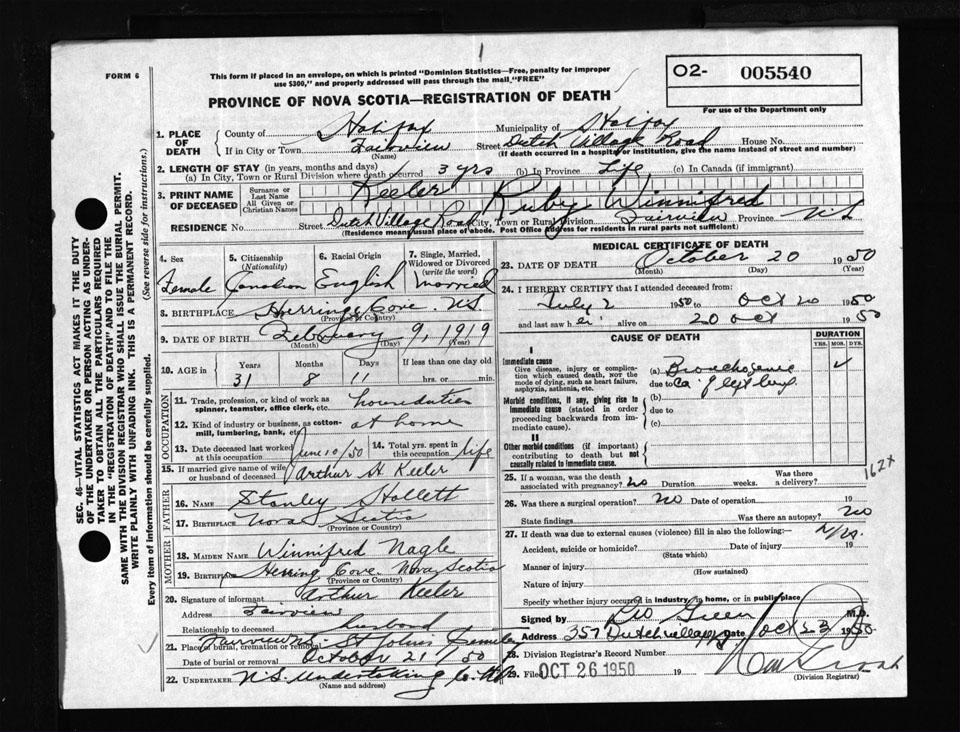 1
FORM 6
This form if placed in an envelope, on which is printed "Dominion Statistics—Free, penalty for improper
use $300," and properly addressed will pass through the mail "FREE"
O2- 005540
For use of the Department only
PROVINCE OF NOVA SCOTIA—REGISTRATION OF DEATH
1. PLACE OF DEATH County of Halifax Municipality of Halifax
If in City or Town Fairview Street Dutch Village Road House No.
(Name) (If death occurred in a hospital or institution, give the name instead of street and number)
2. LENGTH OF STAY (in years, months and days)
(a) In City, Town or Rural Division where death occurred 3 yrs (b) In Province Life (c) In Canada (if immigrant)
3. PRINT NAME OF DECEASED Surname or Last Name Keeler
All Given or Christian Names Ruby Winnifred
RESIDENCE No. Street Dutch Village Road City, Town or Rural Division Fairview Province N.S
(Residence means usual place of abode. Post Office address for residents in rural parts not sufficient)
4. Sex Female
5. Citizenship (Nationality) Canadian
6. Racial Origin English
7. Single, Married, Widowed or Divorced (write the word) Married
8. BIRTHPLACE Herring Cove N.S
(Province or Country)
9. DATE OF BIRTH February 9, 1919
(Month) (Day) (Year)
10. AGE in Years Months Days If less than one day old
31 8 11 hrs. or min.
OCCUPATION
11. Trade, profession, or kind of work as spinner, teamster, office clerk, etc. houseduties
12. Kind of industry or business, as cotton-mill, lumbering, bank, etc. at home
13. Date deceased last worked at this occupation June 10/50
14. Total yrs. spent in this occupation life
15. If married give name of wife or husband of deceased Arthur H Keeler
FATHER
16. NAME Stanley Hollett
17. BIRTHPLACE Nova Scotia
(Province or Country)
MOTHER
18. MAIDEN NAME Winnifred Nagle
19. BIRTHPLACE Herring Cove Nova Scotia
(Province or Country)
20. Signature of informant Arthur Keeler
Address Fairview
Relationship to deceased husband
21. Place of burial, cremation or removal Fairview N.S. St Johns Cemetery
Date of burial or removal October 21/50
22. UNDERTAKER N.S. Undertaking Co.
(Name and address)
MEDICAL CERTIFICATE OF DEATH
23. DATE OF DEATH October 20 1950
(Month) (Day) (Year)
24. I HERECERTIFY that I attended deceased from:
July 2 1950 to Oct 20 1950
and last saw her alive on 20 Oct 1950
CAUSE OF DEATH
DURATION
YRS. MOS. DYS.
I
Immediate cause
Give disease, injury or complication which caused death, not the mode of dying, such as heart failure, asphyxia, asthenia, etc.
(a) Bronchogenic
due to Ca. of left lung
Morbid conditions, if any, giving rise to immediate cause (stated in order proceeding backwards from immediate cause).
(b)
due to
(c)
II
Other morbid conditions (if important) contributing to death but not causally related to immediate cause.
162x
25. If a woman, was the death associated with pregnancy? no Duration weeks. Was there a delivery?
26. Was there a surgical operation? no Date of operation 19
State findings Was there an autopsy? no
27. If death was due to external causes (violence) fill in also the following:—
Accident, suicide or homicide? Date of injury 19
(State which)
Manner of injury
(How sustained)
Nature of injury
Specify whether injury occurred in industry, in home, or in public place
Signed by Geo Green M.D.
Address 257 Dutch village Rd Date Oct 23 1950
28. Division Registrar's Record Number
29. Filed OCT 26 1950 19
(Division Registrar)
SEC. 46—VITAL STATISTICS ACT MAKES IT THE DUTY
OF THE UNDERTAKER OR PERSON ACTING AS UNDER-
TAKER TO OBTAIN ALL THE PARTICULARS REQUIRED
IN THE "REGISTRATION OF DEATH" AND TO FILE THE
SAME WITH THE DIVISION REGISTRAR WHO SHALL ISSUE THE BURIAL PERMIT.
WRITE PLAINLY WITH UNFADING INK. THIS IS A PERMANENT RECORD.
Every item of information should be carefully supplied. (See reverse side for instructions.)